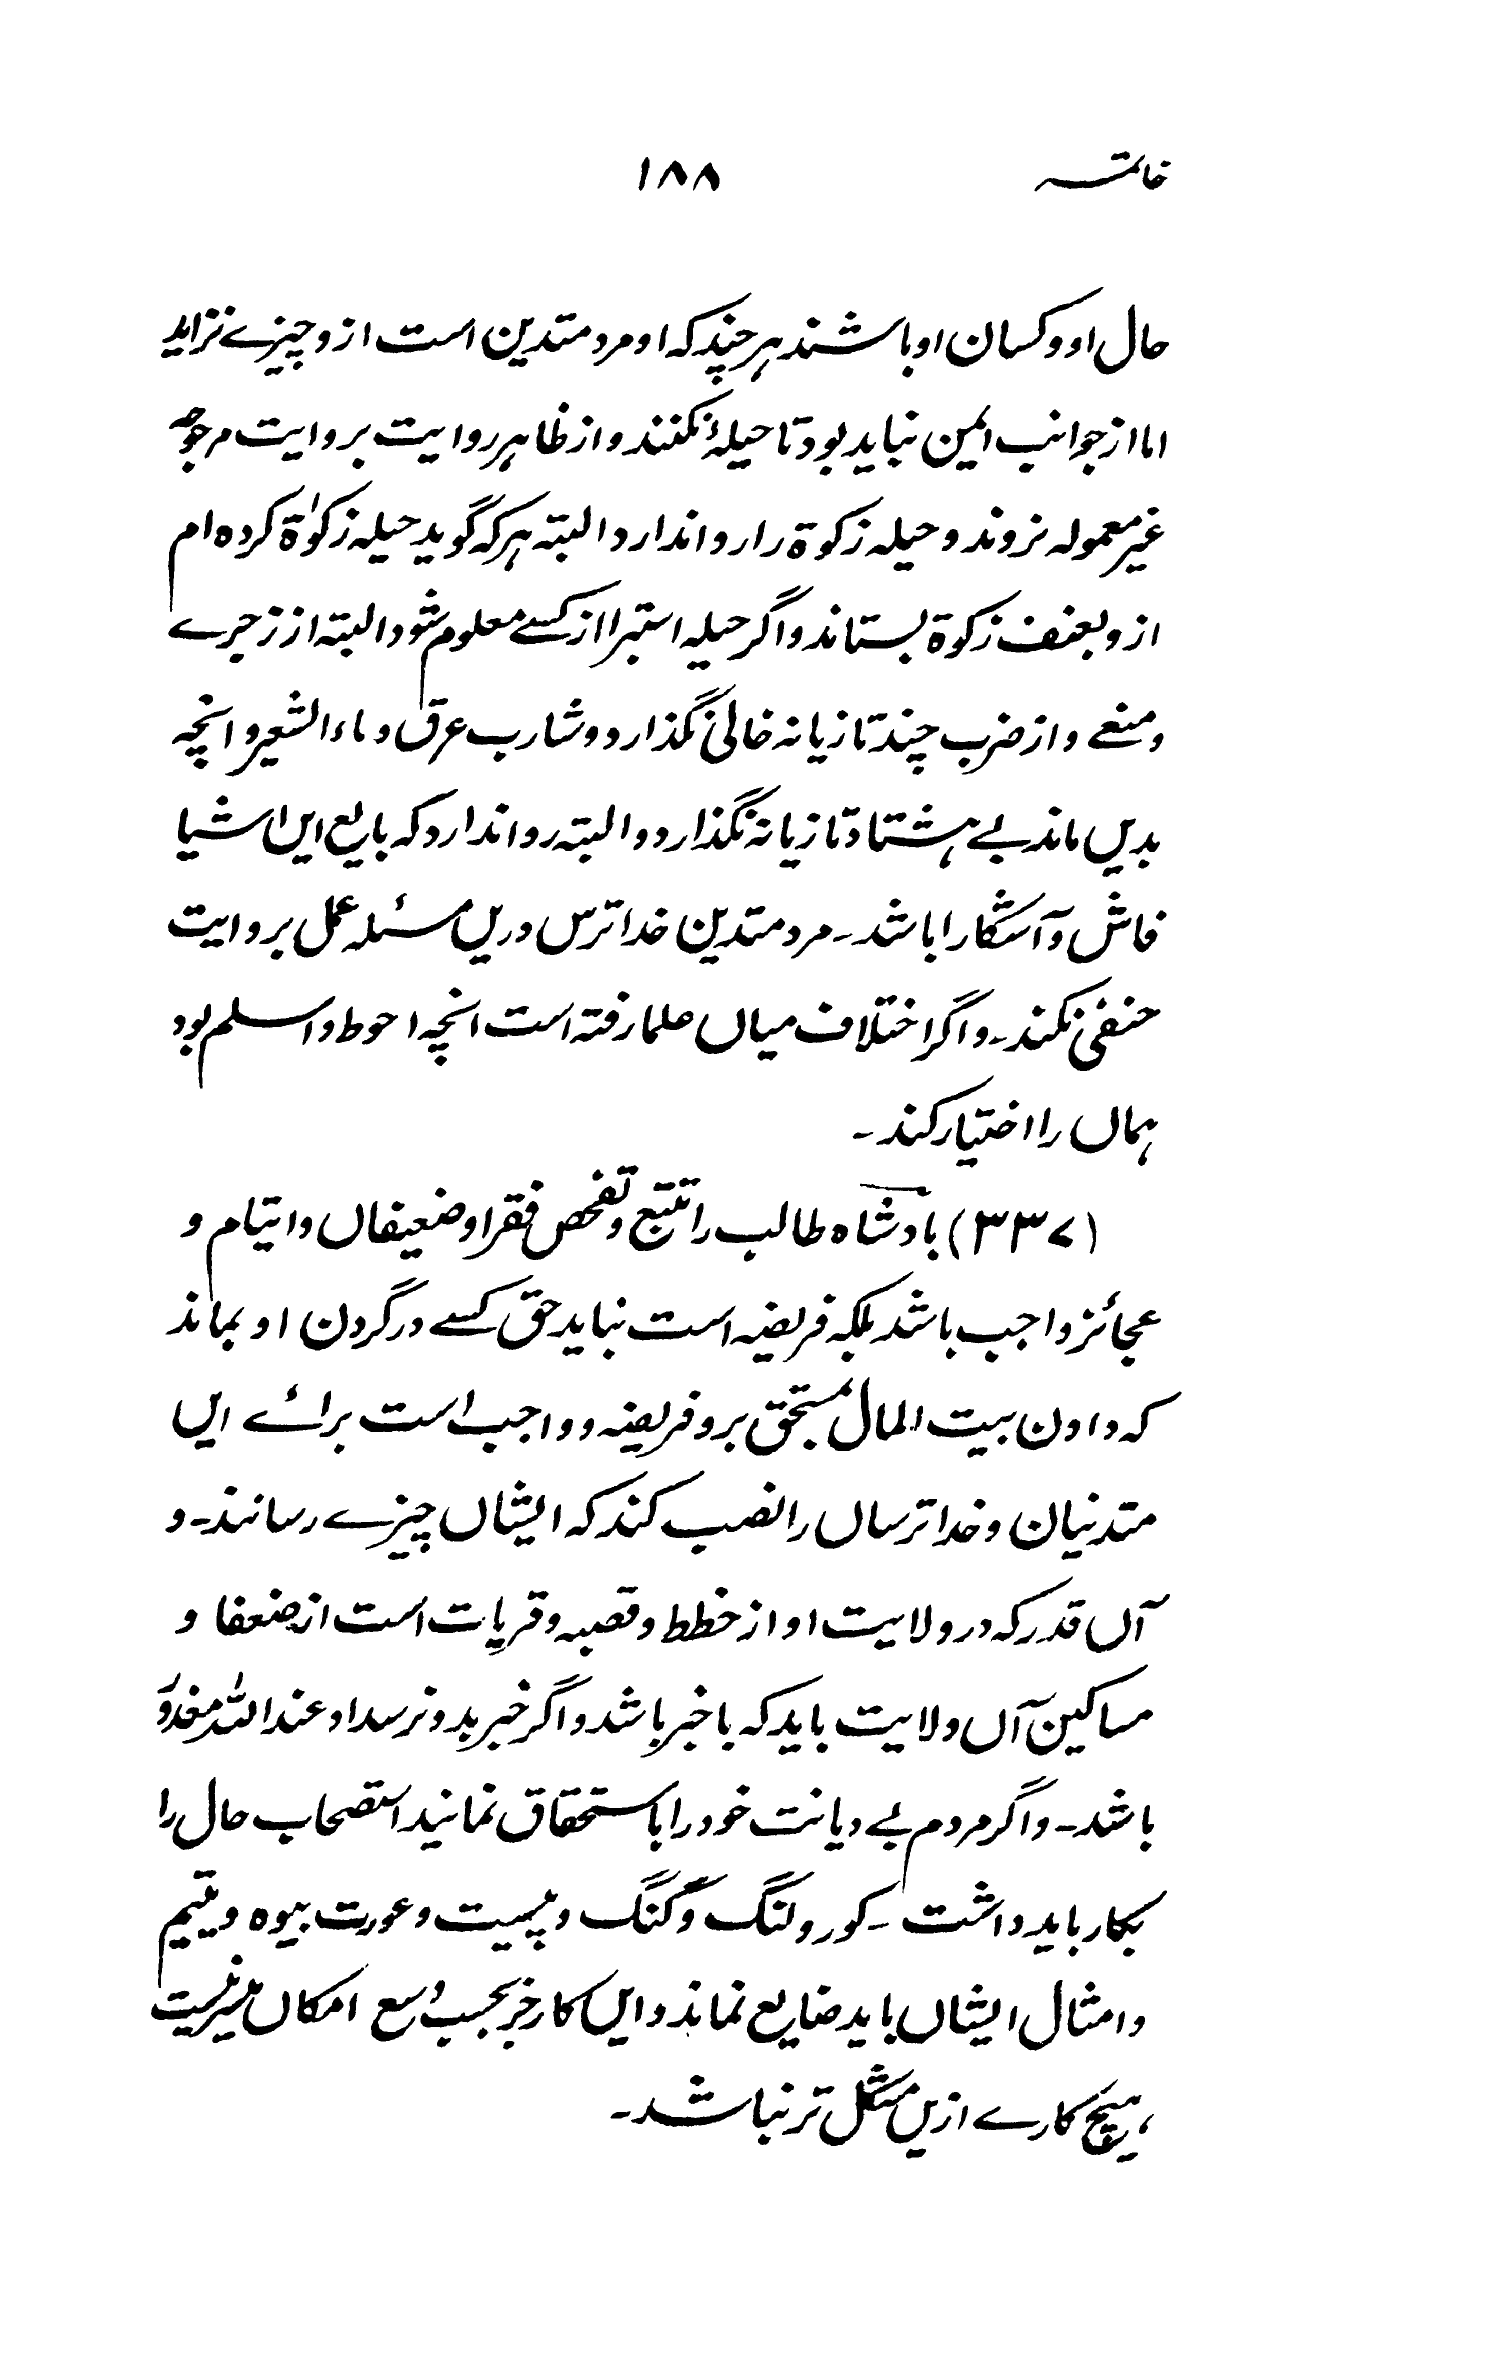 خاتمہ ۱۸۸
حال او و کسان او باشند ہر چند کہ او مرد متدین است از و چیزے نزاید
اما از جوانب ایمن نباید بود تا حیلۂ نکنند و از ظاہر روایت بروایت مرجوحہ
غیر معمولہ نروند و حیلہ زکوة را روا ندارد البتہ ہر کہ گوید حیلہ زکوٰة کردہ ام
از و بعنف زکوة بستاند و اگر حیلہ استبرا از کسے معلوم شود البتہ از زجرے
و منعے و از ضرب چند تازیانہ خالی نگذارد و شارب عرق و ماء الشعیر و انچہ
بدیں ماند بے ہشتاد تازیانہ نگذارد و البتہ روا ندارد کہ بایع ایں اشیا
فاش و آشکارا باشد ۔ مرد متدین خدا ترس دریں مسئلہ عمل بروایت
حنفی نکند ۔ و اگر اختلاف میاں علما رفتہ است انچہ احوط و اسلم بود
ہماں را اختیار کند ۔
(۳۳۷) بادشاہ طالب را تتبع و تفحص فقرا و ضعیفاں و ایتام و
عجائز واجب باشد بلکہ فریضہ است نباید حق کسے در گردن او بماند
کہ دادن بیت المال بمستحق برو فریضہ و واجب است برائے ایں
متدینان و خدا ترساں را نصب کند کہ ایشاں چیزے رسانند ۔ و
آں قدر کہ در ولایت او از خطط و قصبہ و قریات است از ضعفا و
مساکین آں ولایت باید کہ باخبر باشد و اگر خبر بدو نرسد او عند اللہ معذور
باشد ۔ و اگر مردم بے دیانت خود را باستحقاق نمایند استصحاب حال را
بکار باید داشت ۔ کور و لنگ و گنگ و پیست و عورت بیوہ و یتیم
و امثال ایشاں باید ضایع نماند و ایں کار خیر بحسب وسع امکاں میسر نیست
ہیچ کارے ازیں مشکل تر نباشد ۔